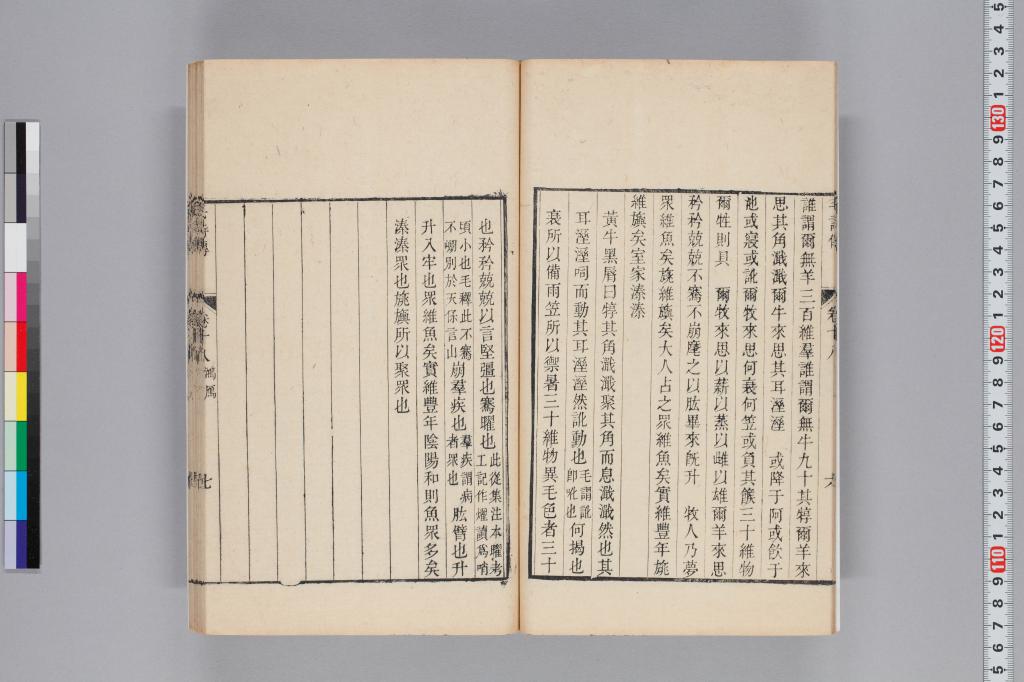 誰謂爾無羊三百維羣誰謂爾無牛九十其犉爾羊來
思其角濈濈爾牛來思其耳溼溼　或降于阿或飲于
池或寢或訛爾牧來思何蓑何笠或負其餱三十維物
爾牲則具　爾牧來思以薪以蒸以雌以雄爾羊來思
矜矜兢兢不騫不崩麾之以肱畢來旣升　牧人乃夢
眾維魚矣旐維旟矣大人占之眾維魚矣實維豐年旐
維旟矣室家溱溱
黃牛黑脣曰犉其角濈濈聚其角而息濈濈然也其
耳溼溼呞而動其耳溼溼然訛動也毛謂訛卽吪也何揭也
蓑所以備雨笠所以禦暑三十維物異毛色者三十
六
也矜矜兢兢以言堅彊也騫曜也此從集注本曜考工記作燿讀爲哨
頃小也毛釋此不騫不崩別於天保言山崩羣疾也羣疾謂病者眾也肱臂也升
升入牢也眾維魚矣實維豐年陰陽和則魚眾多矣
溱溱眾也旐旟所以聚眾也
卷十八　鴻鴈
七